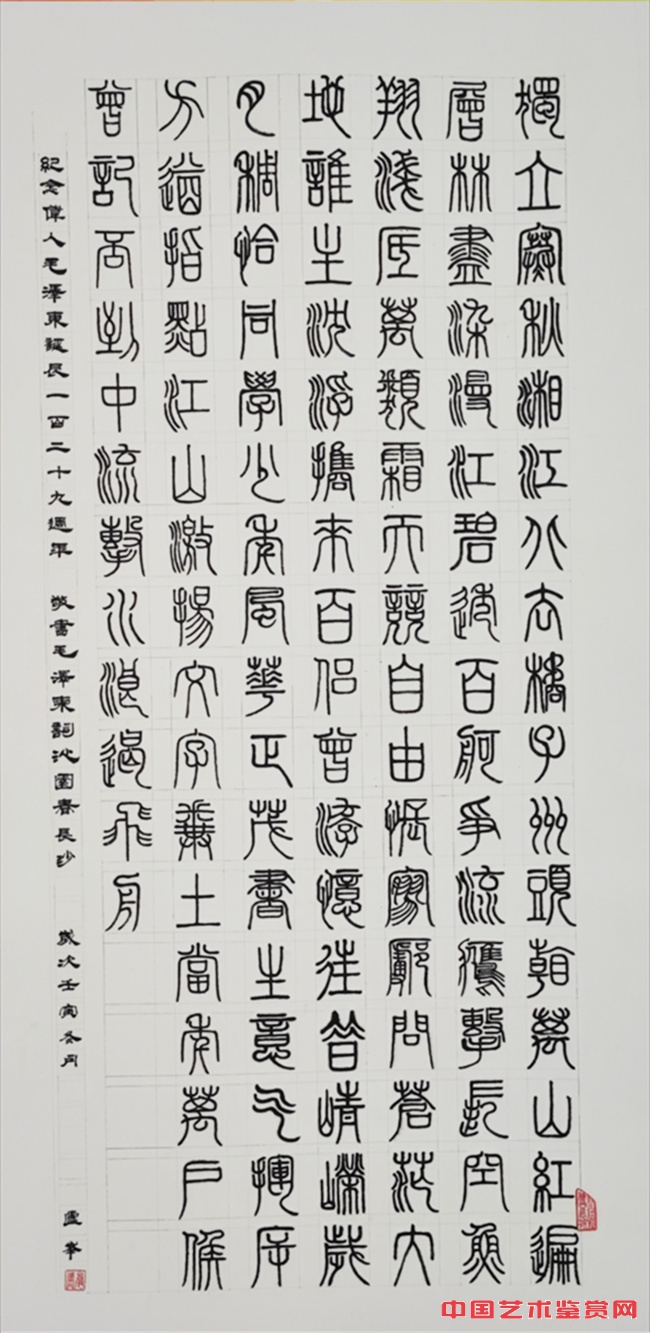 獨立寒秋湘江北去橘子洲頭看萬山紅遍
層林盡染漫江碧透百舸爭流鷹擊長空魚
翔淺底萬類霜天競自由悵寥廓問蒼茫大
地誰主沈浮攜來百侶曾游憶往昔崢嶸歲
月稠恰同學少年風華正茂書生意氣揮斥
方遒指點江山激揚文字糞土當年萬戶侯
曾記否到中流擊水浪遏飛舟
紀念偉人毛澤東誕辰一百二十九週年 敬書毛澤東詞沁園春長沙 歲次壬寅冬月 盧峯
中国艺术鉴赏网